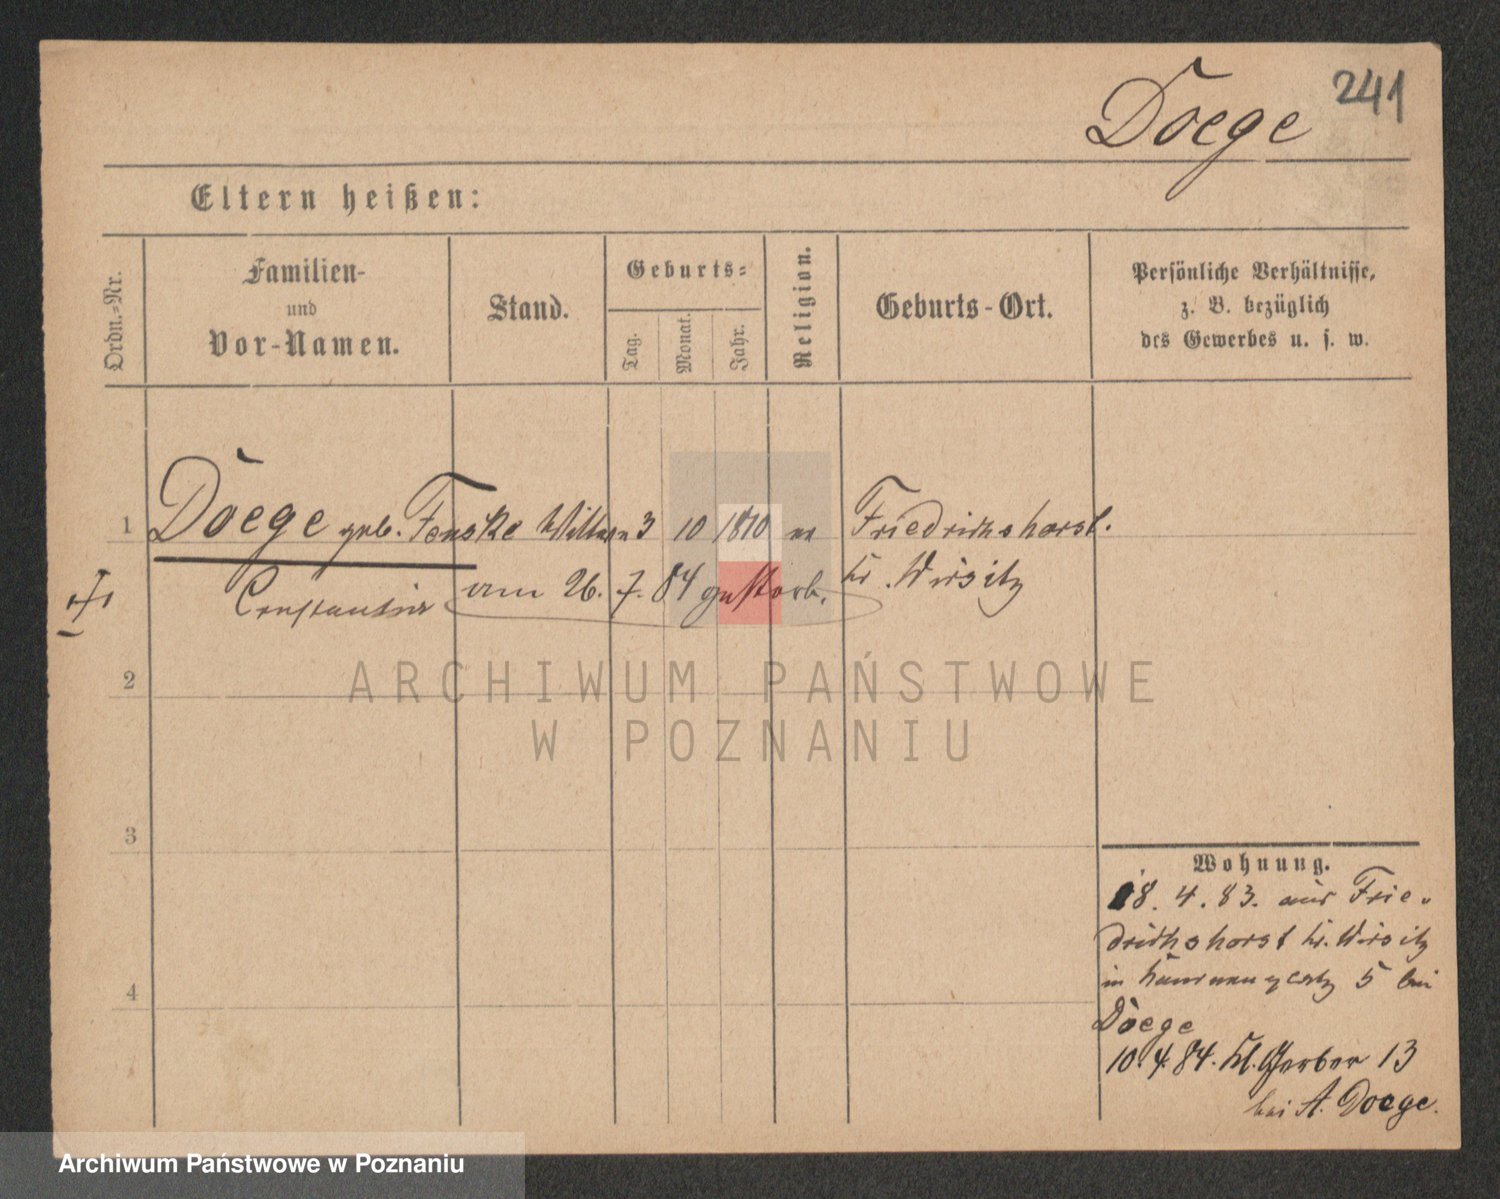 241
Doege
Eltern heißen:
Ordn.-Nr.
Familien-
und
Vor-Namen.
Stand.
Geburts-
Tag.
Monat.
Jahr.
Religion.
Geburts-Ort.
Persönliche Verhältnisse,
z. B. bezüglich
des Gewerbes u. s. w.
1
Doege geb. Fenske Wittwe 3 10 1810 ev Friedrichshorst.
Constantine am 26. 7. 84 gestorb. Kr. Wirsitz
2
ARCHIWUM PAŃSTWOWE
W POZNANIU
3
4
Wohnung.
18. 4. 83. aus Frie-
drichshorst Kr. Wirsitz
in 5 bei
Doege
10.4.84. Kl. Gerber 13
bei A. Doege.
Archiwum Państwowe w Poznaniu